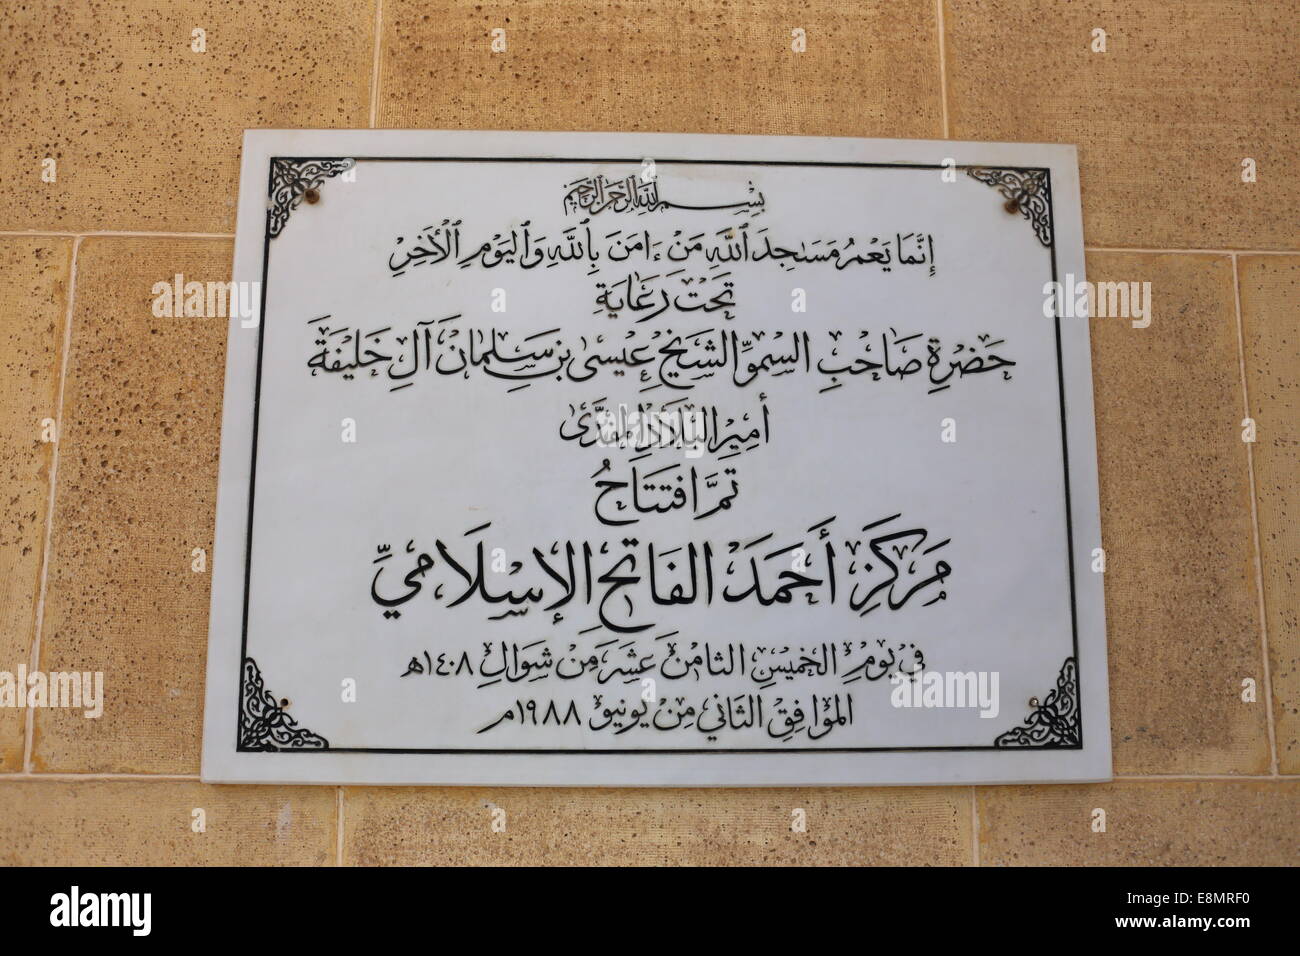 بِسْمِ اللَّهِ الرَّحْمَنِ الرَّحِيمِ
إِنَّمَا يَعْمُرُ مَسَـٰجِدَ ٱللَّهِ مَنْ ءَامَنَ بِٱللَّهِ وَٱلْيَوْمِ ٱلْأَخِرِ
تَحْتَ رِعَايَةِ
حَضْرَةِ صَاحِبِ السُّمُوِّ الشَّيْخِ عِيسَى بْنِ سَلْمَانَ آلِ خَلِيفَةَ
أَمِيرِ الْبِلَادِ الْمُفَدَّى
تَمَّ افْتِتَاحُ
مَرْكَزِ أَحْمَدَ الْفَاتِحِ الْإِسْلَامِيِّ
فِي يَوْمِ الْخَمِيسِ الثَّامِنَ عَشَرَ مِنْ شَوَّالِ ١٤٠٨هـ
الْمُوَافِقِ الثَّانِي مِنْ يُونْيُو ١٩٨٨م
alamy
alamy
a
a
a
a
alamy
Image ID: E8MRF0
www.alamy.com